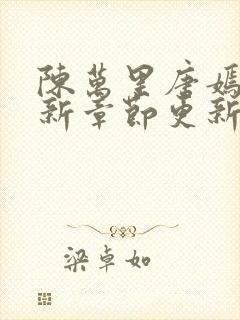 陳萬里唐嫣
新章節更新
梁卓如